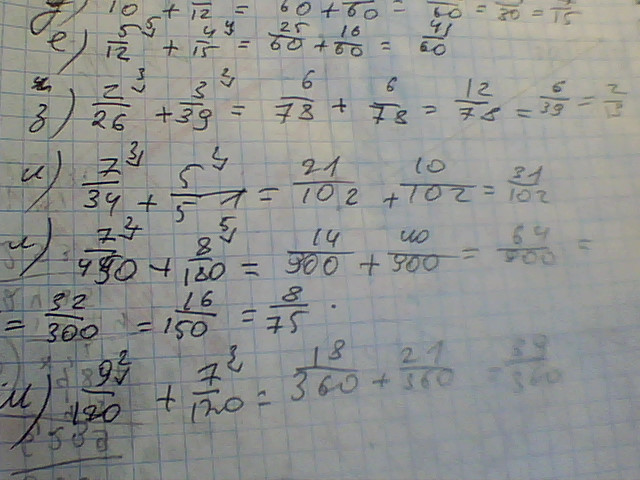 10 + 12 = 60 + 60 = 60 = 30 = 15
е) 5/12 + 4/15 = 25/60 + 16/60 = 41/60
з) 2/26 + 3/39 = 6/78 + 6/78 = 12/78 = 6/39 = 2/13
и) 7/34 + 5/51 = 21/102 + 10/102 = 31/102
7/450 + 8/180 = 14/900 + 40/900 = 64/900 =
= 32/300 = 16/150 = 8/75 .
м) 9/180 + 7/120 = 18/360 + 21/360 = 39/360